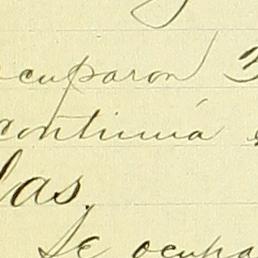 ocuparon 3
continuá
las.
Se ocupa